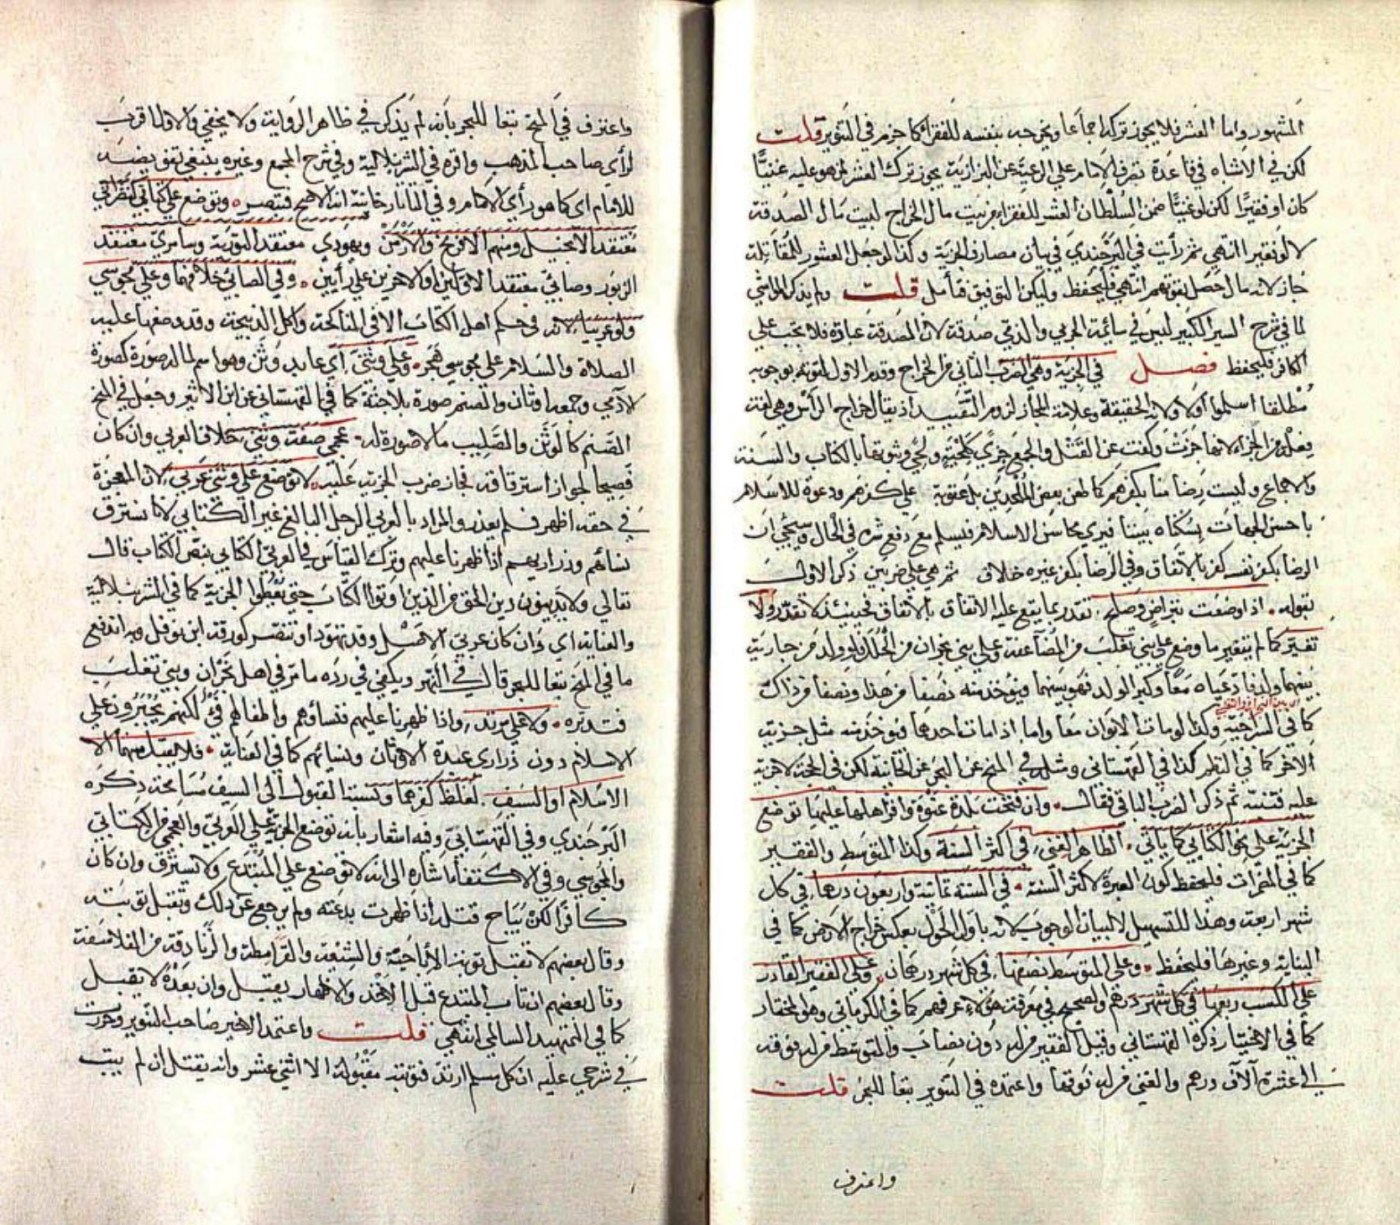 المشهور واما العشر فلا يجوز تركه اجماعا ويخرجه بنفسه للفقراء كما جزم في التنوير قلت
لكن في الاشباه في قاعدة تصرف الامام على الرعية عن البزازية يجوز ترك العشر لمن هو عليه غنيا
كان او فقيرا لكن لو غنيا ضمن السلطان العشر للفقراء من بيت مال الخراج لبيت مال الصدقة
لا لو فقيرا انتهى ثم رأيت في البرجندي في بيان مصارف الجزية وكذا لو جعل العشور للمقاتلة
جاز لانه مال حصل بقوتهم انتهى فليحفظ وليكن التوفيق فتأمل قلت ولم يذكر المواشي
لما في شرح السير الكبير ليس في سائمة الحربي والذمي صدقة لان الصدقة عبادة فلا تجب على
الكافر فليحفظ فصل في الجزية وهي الضرب الثاني من الخراج وقدم الاول لقوته بوجوبه
مطلقا اسلموا اولا ولانه الحقيقة وعلامة المجاز لزوم التقييد اذ يقال خراج الرأس وهي لغة
فعلة من الجزاء لانها اجزت وكفت عن القتل والجمع جزى كلحية ولحى وثبوتها بالكتاب والسنة
والاجماع وليست رضا منا بكفرهم كما طعن بعض الملحدين بل عقوبة على كفرهم ودعوة للاسلام
باحسن الجهات بسكناه بيننا فيرى محاسن الاسلام فيسلم مع دفع شره في الحال وسيجئ ان
الرضا بكفر نفسه كفر بالاتفاق وفي الرضا بكفر غيره خلاف ثم هي على ضربين ذكر الاول
بقوله اذا وضعت بتراض وصلح تقدر بما يقع عليه الاتفاق بالاتفاق فحينئذ لا تقدر ولا
تغير كما لم يتغير ما وضع على بني تغلب من المضاعفة وعلى بني نجران من الحلل ولو ولد من جارية
بينهما ولد فادعياه معا وكبر الولد فهو بينهما فيؤخذ منه نصفا من هذا ونصفا من ذاك
كما في السراجية وكذا لو مات الابوان معا واما اذا مات احدهما فيؤخذ منه مثل جزية
الآخر كما في النظم كذا في القهستاني ومثله في المنح عن البحر عن الخانية لكن في
عليه فتنبه ثم ذكر الضرب الثاني فقال وان فتحت بلدة عنوة واقر اهلها عليها توضع
الجزية على نحو الكتابي كما يأتي الظاهر الغني في اكثر السنة وكذا المتوسط والفقير
كما في المضمرات فليحفظ كون العبرة لاكثر السنة في السنة ثمانية واربعون درهما في كل
شهر اربعة وهذا للتسهيل لا لبيان الوجوب لانه باول الحول بعكس خراج الارض كما في
البناية وغيرها فليحفظ وعلى المتوسط نصفها في كل شهر درهمان وعلى الفقير القادر
على الكسب ربعها في كل شهر درهم والصحيح في معرفة هؤلاء عرفهم كما في الكرماني وهو المختار
كما في الاختيار ذكره القهستاني وقيل الفقير من له دون نصاب والمتوسط من له فوقه
الى عشرة آلاف درهم والغني من له فوقها واعتمده في التنوير تبعا للبحر قلت
واعترف
واعترف في المنح تبعا للبحر بانه لم يذكر في ظاهر الرواية ولا يخفى والا فما قرب
لرأي صاحب المذهب واقره في الشرنبلالية وفي شرح المجمع وغيره ينبغي تفويضه
للامام اي كما هو رأي الامام وفي التاتارخانية انه الاصح فتبصر وتوضع على كتابي نصراني
معتقد الانجيل ومنهم الافرنج والارمن ويهودي معتقد التورية وسامري معتقد
الزبور وصابئي معتقد الاولين او الآخرين على رأيين وفي الصابئي خلافهما وعلى مجوسي
ولو عربيا لانه في حكم اهل الكتاب الا في المناكحة واكل الذبيحة وقد وضعها عليه
الصلاة والسلام على مجوسي هجر وعلى وثني اي عابد وثن وهو اسم لما له صورة كصورة
الآدمي وجمعه اوثان والصنم صورة بلا جثة كما في القهستاني عن ابن الاثير وجعل في المنح
الصنم كالوثن والصليب ما لا صورة له عجمي صفة وثني بخلاف العربي وان كان
فصيحا لجواز استرقاقه فجاز ضرب الجزية عليه لا توضع على وثني عربي لان المعجزة
في حقه اظهر فلم يعذر والمراد بالعربي الرجل البالغ غير الكتابي لانا نسترق
نساءهم وذراريهم اذا ظهرنا عليهم وترك القياس في العربي الكتابي بنص الكتاب قال
تعالى ولا يدينون دين الحق من الذين اوتوا الكتاب حتى يعطوا الجزية كما في الشرنبلالية
والعناية اي وان كان عربي الاصل وقد تهود او تنصر كورقة ابن نوفل وبه اندفع
ما في المنح تبعا للبحر قال في النهر ويكفي في رده ما مر في اهل نجران وبني تغلب
فتدبره ولا على مرتد واذا ظهرنا عليهم فنساؤهم واطفالهم فيء لكنهم يجبرون على
الاسلام دون ذراري عبدة الاوثان ونسائهم كما في العناية فلا يقبل منهما الا
الاسلام او السيف لغلظ كفرهما ونسبة القبول الى السيف مسامحة ذكره
البرجندي وفي القهستاني وفيه اشعار بانه توضع الجزية على العربي والعجمي من الكتابي
والمجوسي وفي الاكتفاء اشارة الى انه لا توضع على المبتدع ولا تسترق وان كان
كافرا لكن يباح قتله اذا ظهرت بدعته ولم يرجع عن ذلك وتقبل توبته
وقال بعضهم لا تقبل توبة الاباحية والشيعة والقرامطة والزنادقة من الفلاسفة
وقال بعضهم ان تاب المبتدع قبل الاخذ والاظهار يقبل وان بعده لا يقبل
كما في التمهيد السالمي انتهى قلت واعتمد الاخير صاحب التنوير وحررت
في شرحي عليه ان كل مسلم ارتد فتوبته مقبولة الا اثني عشر وانه يقتل ان لم يتب